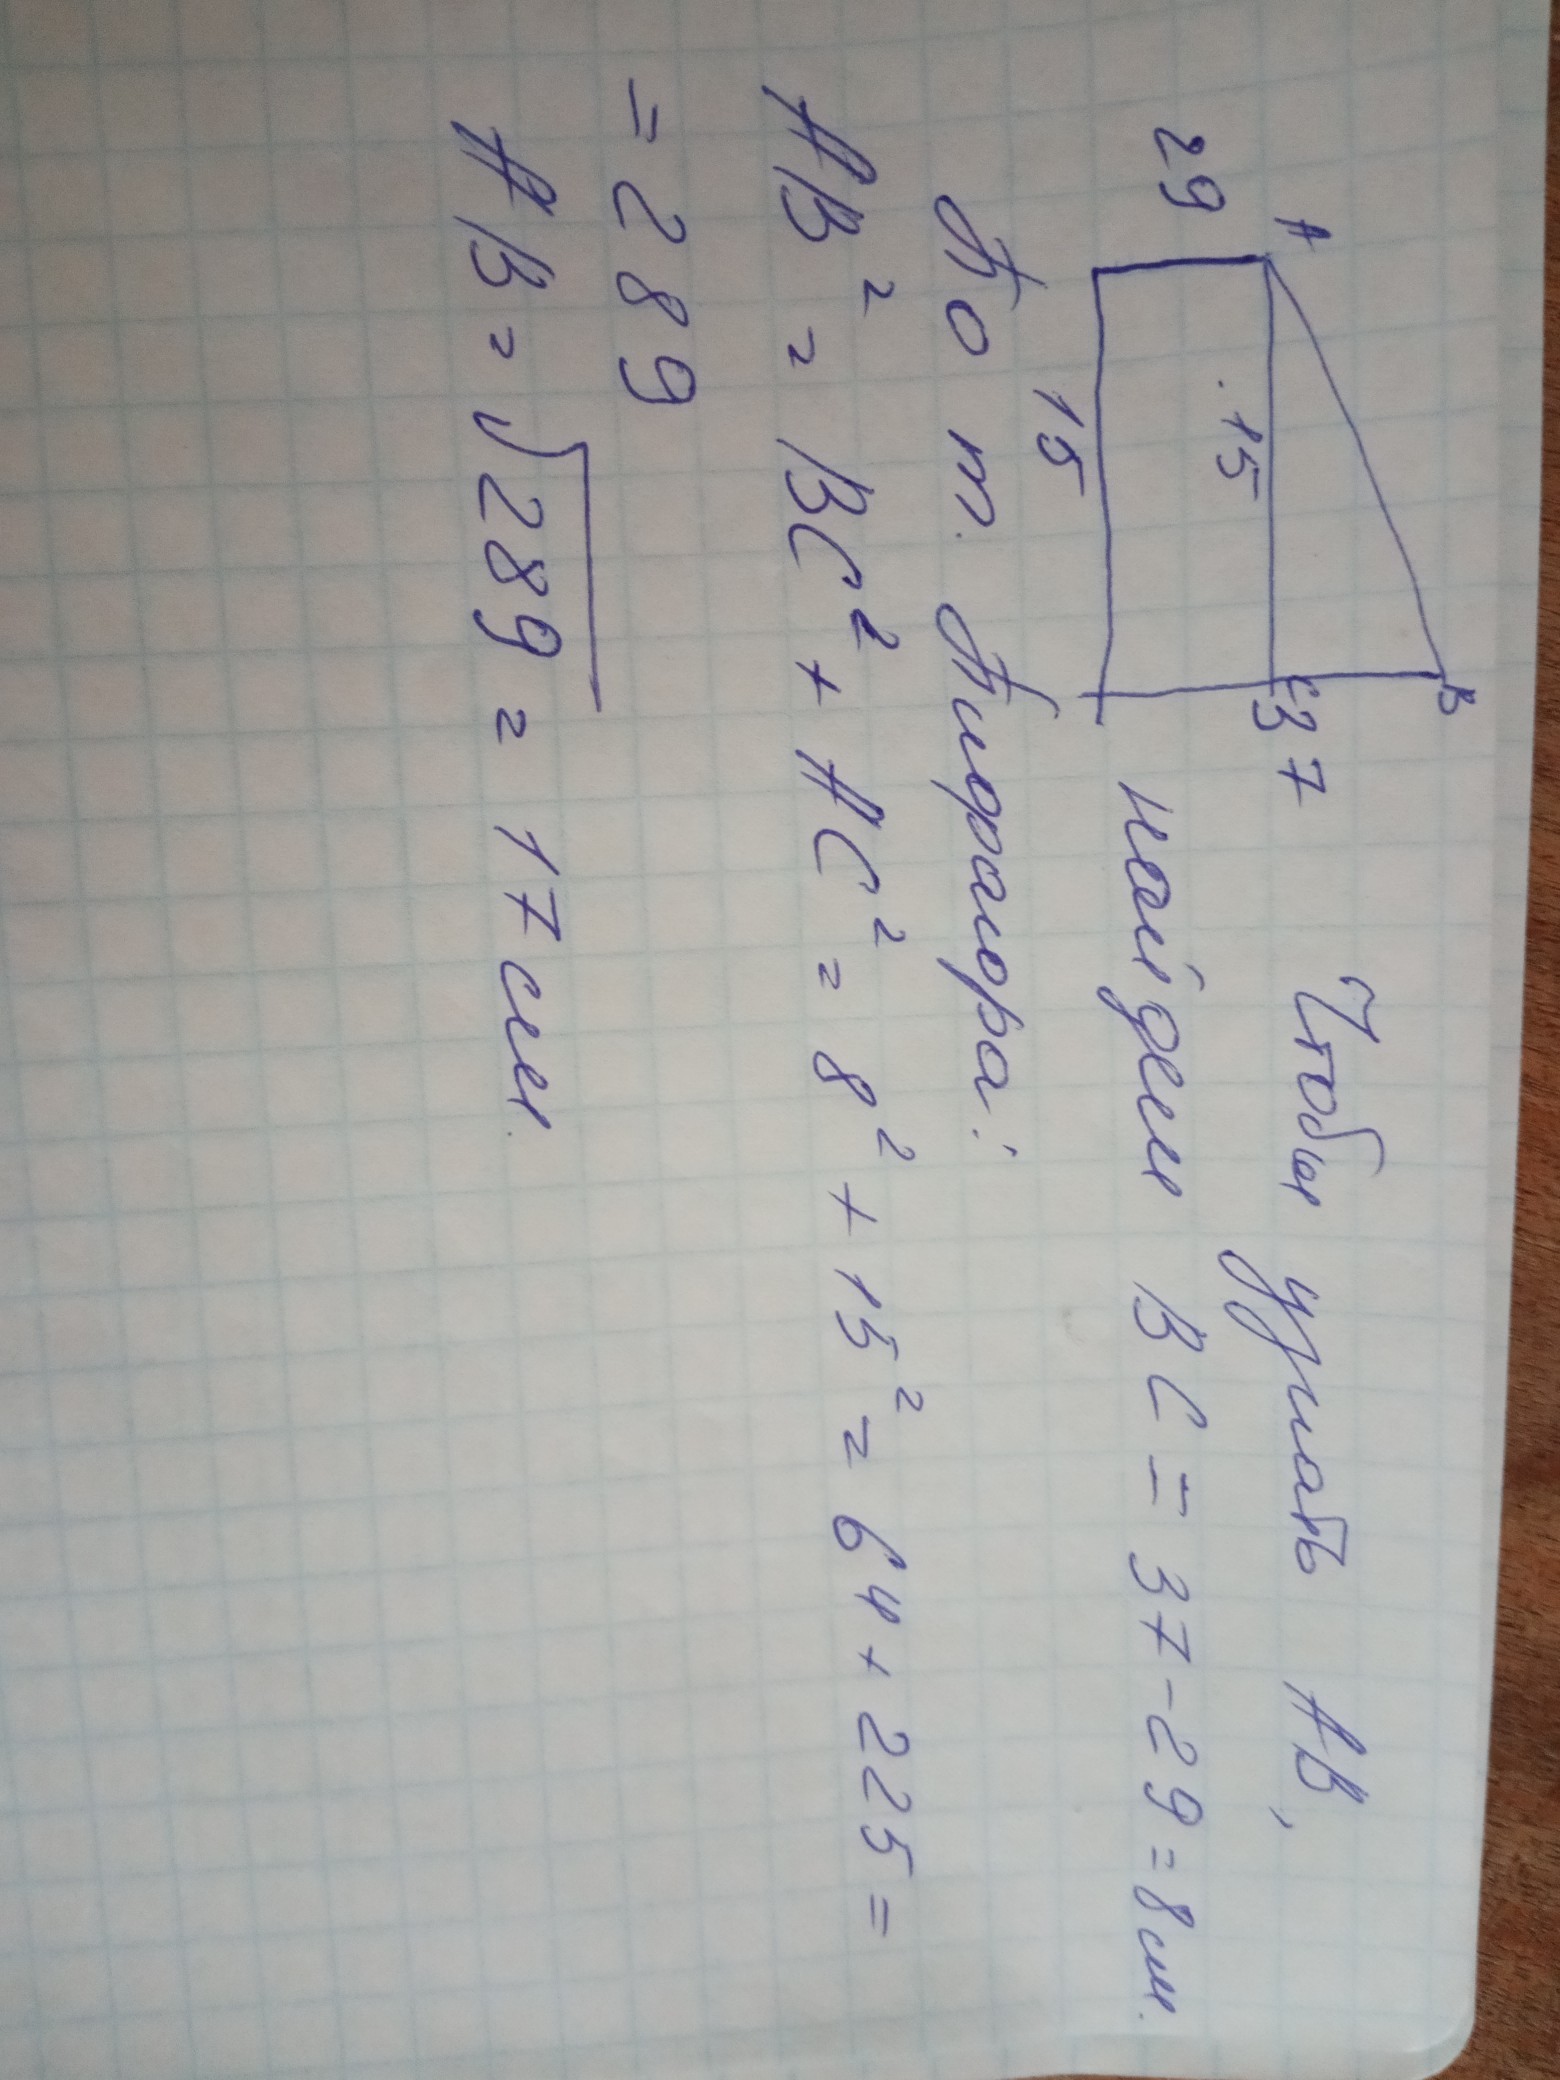 A
B
C
29
15
37
15
Чтобы узнать AB,
найдем BC = 37-29=8см.
По т. Пифагора:
AB² = BC² + AC² = 8² + 15² = 64+225=
= 289
AB = √289 = 17см.